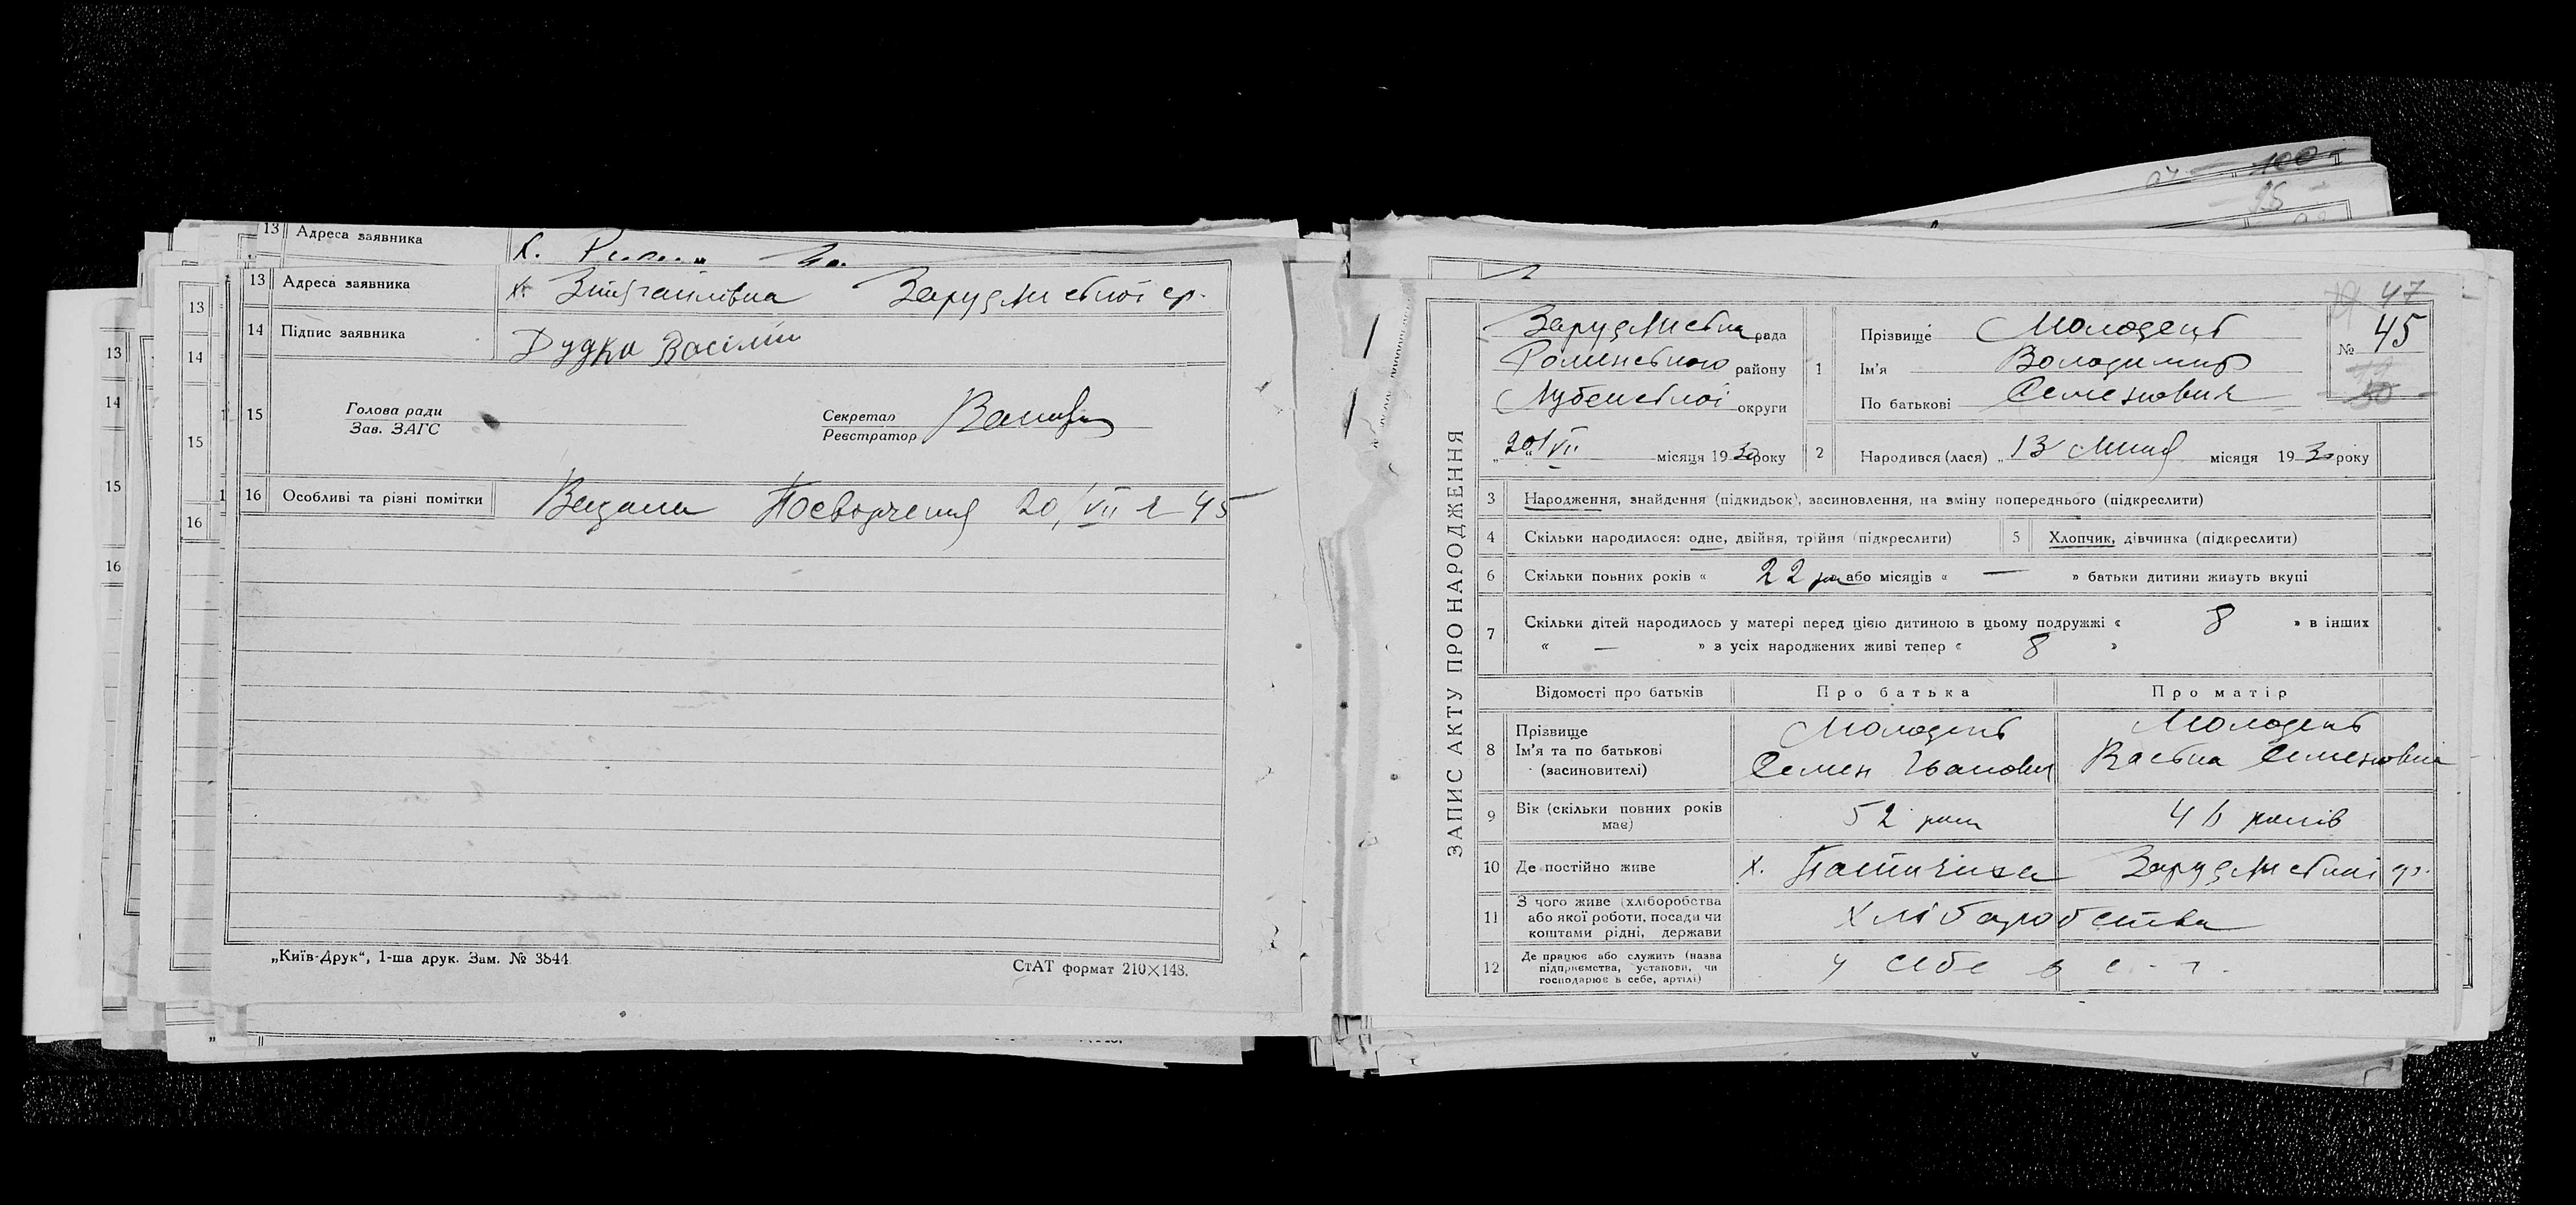 13 Адреса заявника х.
13 Адреса заявника х. Зарудянської ср.
14 Підпис заявника Дудка Василь
15 Голова ради
Зав. ЗАГС
Секретар
Реєстратор
16 Особливі та різні помітки Видана Посвідчення 20/VII № 45
„Київ-Друк“, 1-ша друк. Зам. № 3844
СтАТ формат 210×148.
13
14
15
16
13
14
15
16
100
95
47
ЗАПИС АКТУ ПРО НАРОДЖЕННЯ
Зарудянська рада
Роменського району
Лубенської округи
„20/VII місяця 1930 року
1 Прізвище Молодець
Ім'я Володимир
По батькові Семенович
№ 45
50
2 Народився (лася) „13 Липня місяця 1930 року
3 Народження, знайдення (підкидьок), засиновлення, на зміну попереднього (підкреслити)
4 Скільки народилося: одне, двійня, трійня (підкреслити) 5 Хлопчик, дівчинка (підкреслити)
6 Скільки повних років « 22 ро або місяців « — » батьки дитини живуть вкупі
7 Скільки дітей народилось у матері перед цією дитиною в цьому подружжі « 8 » в інших
« — » з усіх народжених живі тепер « 8 »
Відомості про батьків Про батька Про матір
8 Прізвище
Ім'я та по батькові
(засиновителі)
Молодець
Семен Іванович
Молодець
Семеновна
9 Вік (скільки повних років
має)
52 роки
46 років
10 Де постійно живе х. Зарудянської ср.
11 З чого живе (хліборобства
або якої роботи, посади чи
коштами рідні, держави
Хліборобства
12 Де працює або служить (назва
підприємства, установи, чи
господарює в себе, артілі)
у себе в с. г.